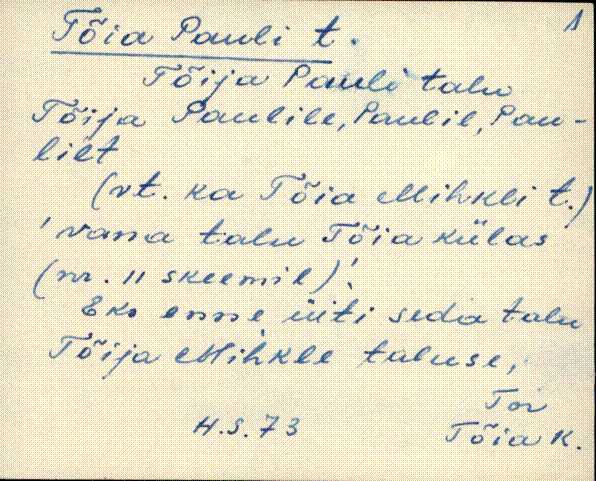 1
Tõia Pauli t.
Tõija Pauli talu
Tõija Paulile, Paulil, Pau-
lilt
(vt. ka Tõia Mihkli t.)
'vana talu Tõia külas
(nr. 11 skeemil)'.
Eks enne üiti seda talu
Tõija Mihkle taluse,
Tor
H.S. 73 Tõia K.